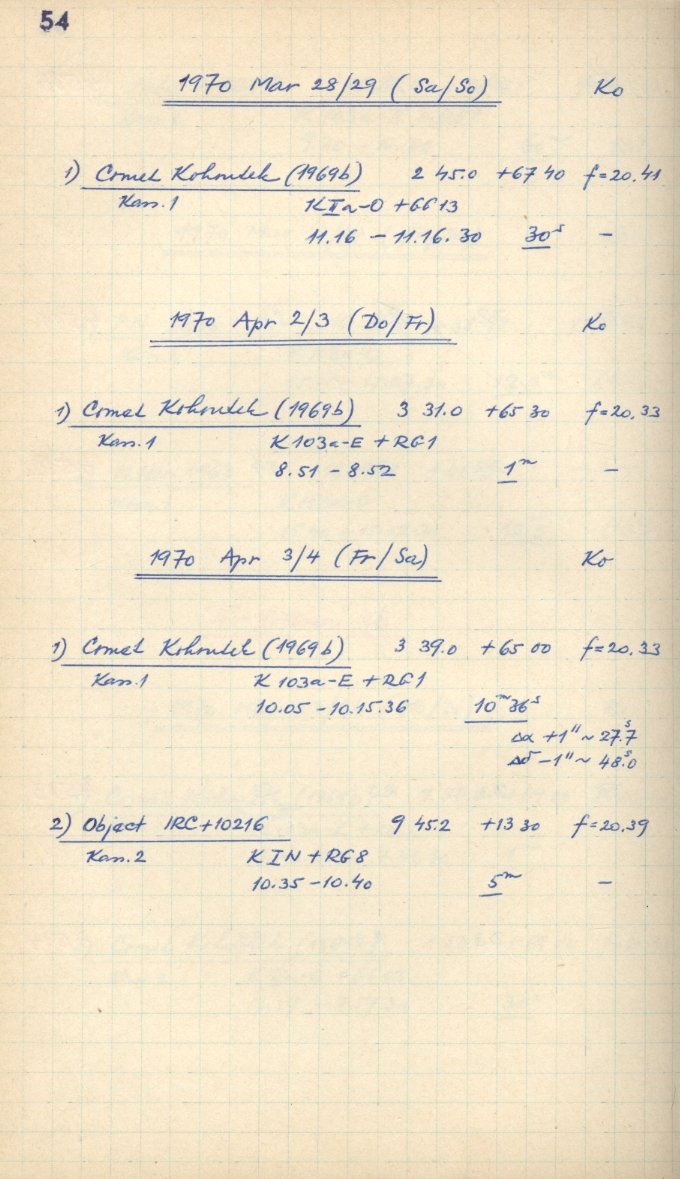 54
1970 Mar 28/29 (Sa/So) Ko
1) Comet Kohoutek (1969b) 2 45.0 +67 40 f=20.41
Kass.1 KIIa-O +GG13
11.16 - 11.16.30 30s -
1970 Apr 2/3 (Do/Fr) Ko
1) Comet Kohoutek (1969b) 3 31.0 +65 30 f=20.33
Kass.1 K103a-E +RG1
8.51 - 8.52 1m -
1970 Apr 3/4 (Fr/Sa) Ko
1) Comet Kohoutek (1969b) 3 39.0 +65 00 f=20.33
Kass.1 K103a-E +RG1
10.05 - 10.15.36 10m36s
Δα +1" ~ 27s.7
Δδ -1" ~ 48s.0
2) Object IRC+10216 9 45.2 +13 30 f=20.39
Kass.2 KIN +RG8
10.35 - 10.40 5m -